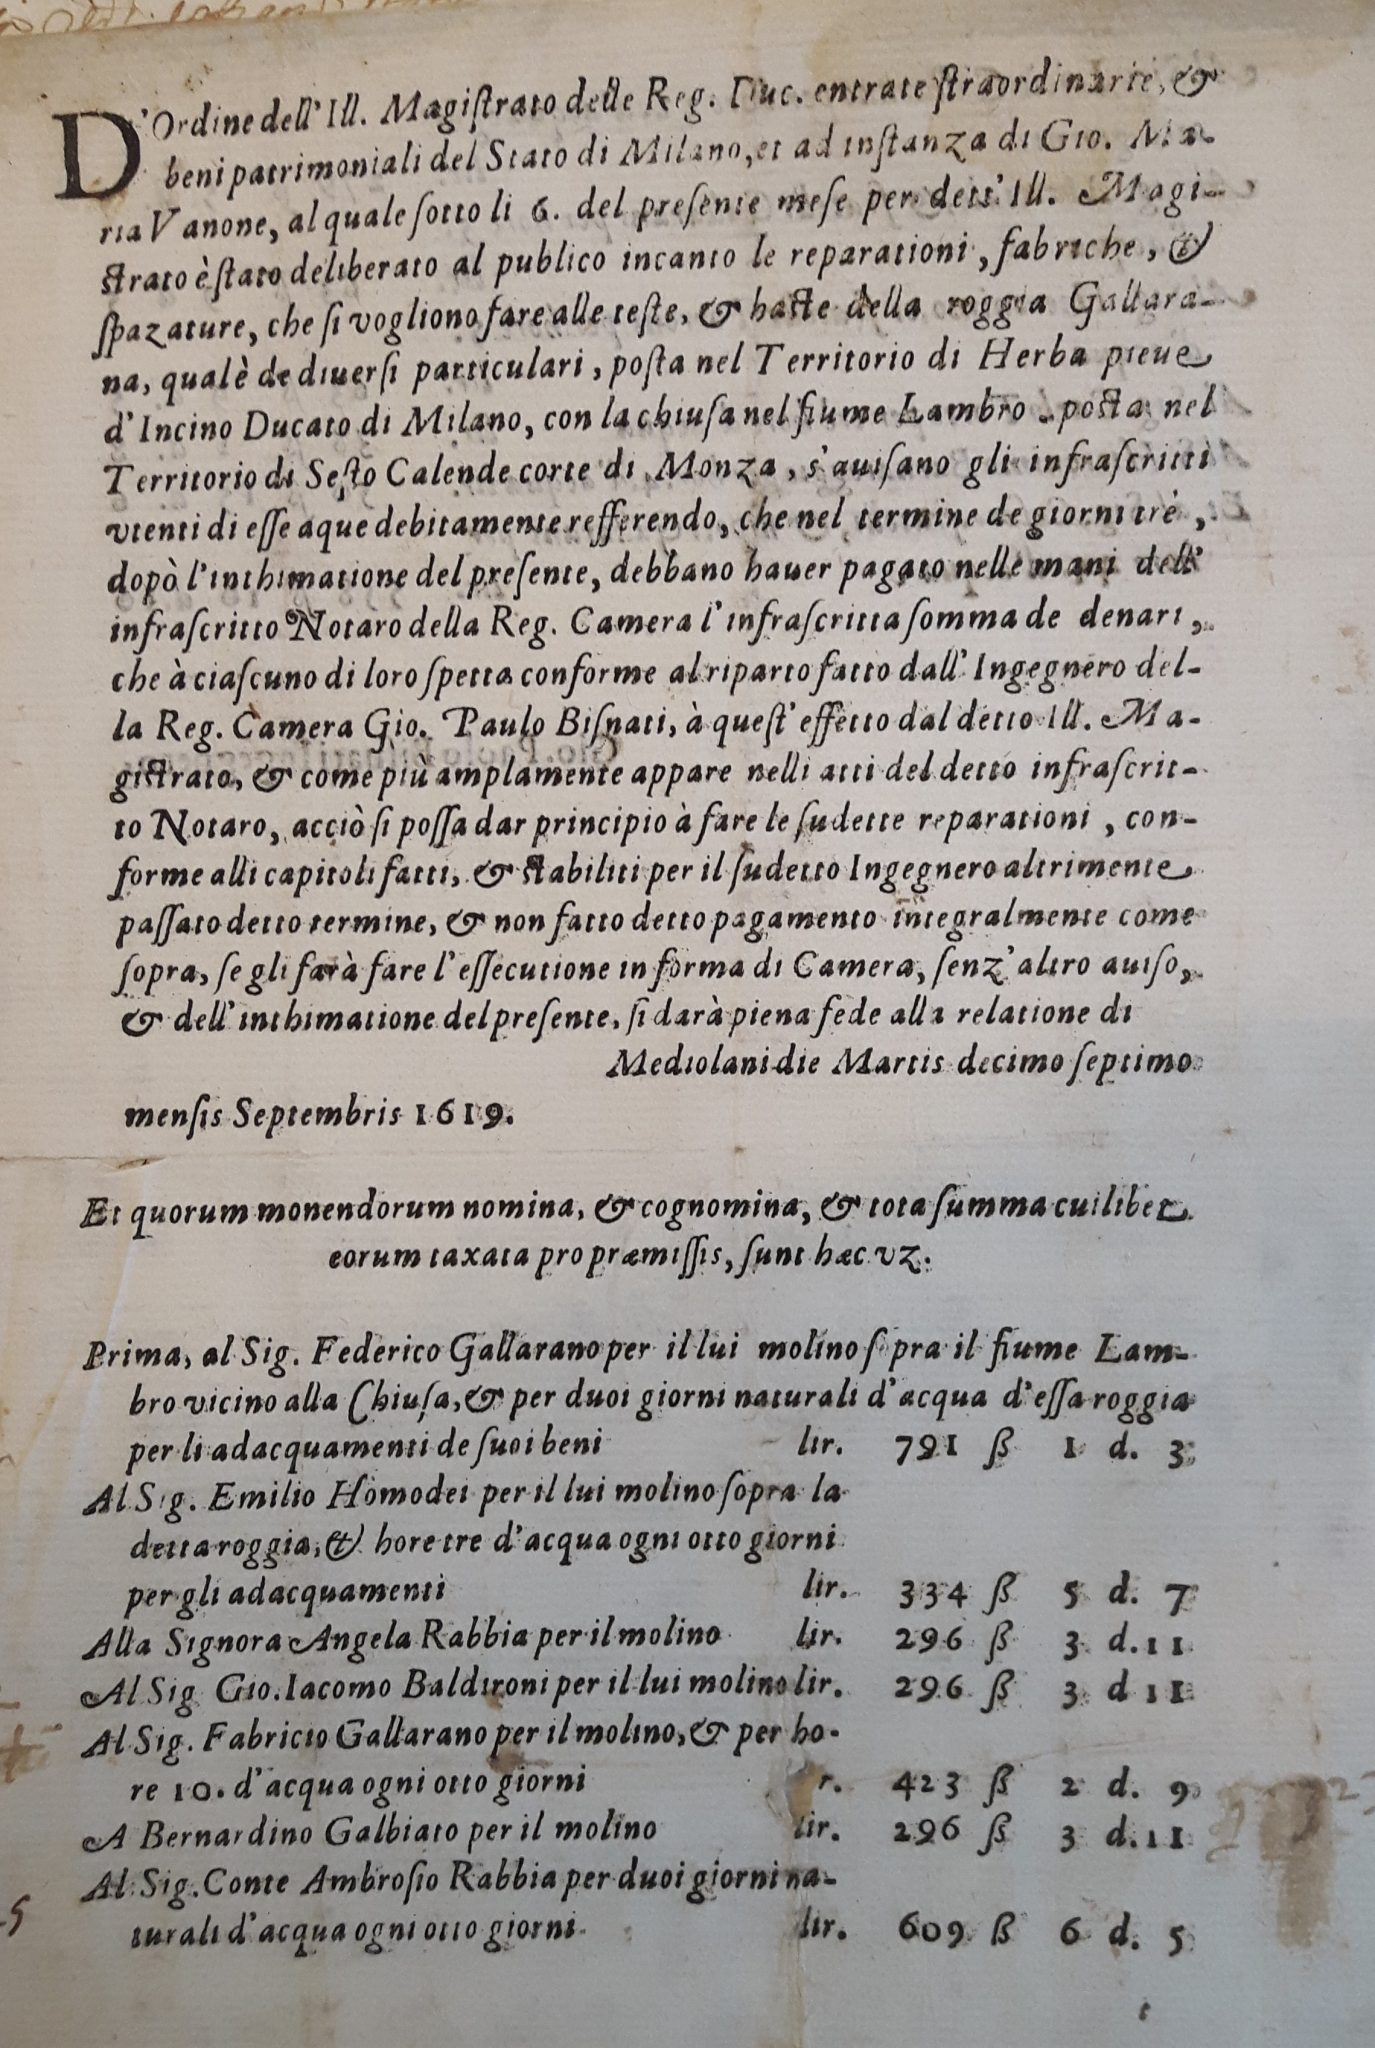 D'Ordine dell'Ill. Magiſtrato delle Reg. Duc. entrate ſtraordinarie, &
beni patrimoniali del Stato di Milano, et ad inſtanza di Gio. Ma-
ria Vanone, al quale ſotto li 6. del preſente meſe per dett' Ill. Magi-
ſtrato è ſtato deliberato al publico incanto le reparationi, fabriche, &
ſpazature, che ſi vogliono fare alle teſte, & haſte della roggia Gallara-
na, qual è de diuerſi particulari, poſta nel Territorio di Herba pieue
d'Incino Ducato di Milano, con la chiuſa nel fiume Lambro, poſta nel
Territorio di Seſto Calende corte di Monza, s'auiſano gli infraſcritti
vtenti di eſſe aque debitamente refferendo, che nel termine de giorni trè,
dopò l'inthimatione del preſente, debbano hauer pagato nelle mani dell'
infraſcritto Notaro della Reg. Camera l'infraſcritta ſomma de denari,
che à ciaſcuno di loro ſpetta conforme al riparto fatto dall'Ingegnero del-
la Reg. Camera Gio. Paulo Biſnati, à queſt'effetto dal detto Ill. Ma-
giſtrato, & come più amplamente appare nelli atti del detto infraſcrit-
to Notaro, acciò ſi poſſa dar principio à fare le ſudette reparationi, con-
forme alli capitoli fatti, & ſtabiliti per il ſudetto Ingegnero altrimente
paſſato detto termine, & non fatto detto pagamento integralmente come
ſopra, ſe gli farà fare l'eſſecutione in forma di Camera, ſenz'altro auiſo,
& dell'inthimatione del preſente, ſi darà piena fede alla relatione di
Mediolani die Martis decimo ſeptimo
menſis Septembris 1619.
Et quorum monendorum nomina, & cognomina, & tota ſumma cuilibet
eorum taxata pro præmiſſis, ſunt hæc vz.
Prima, al Sig. Federico Gallarano per il lui molino ſopra il fiume Lam-
bro vicino alla Chiuſa, & per duoi giorni naturali d'acqua d'eſſa roggia
per li adacquamenti de ſuoi beni lir. 791 ß 1 d. 3
Al Sig. Emilio Homodei per il lui molino ſopra la
detta roggia, & hore tre d'acqua ogni otto giorni
per gli adacquamenti lir. 334 ß 5 d. 7
Alla Signora Angela Rabbia per il molino lir. 296 ß 3 d. 11
Al Sig Gio. Iacomo Baldironi per il lui molino lir. 296 ß 3 d 11
Al Sig. Fabricio Gallarano per il molino, & per ho-
re 10. d'acqua ogni otto giorni r. 423 ß 2 d. 9
A Bernardino Galbiato per il molino lir. 296 ß 3 d. 11
Al Sig. Conte Ambroſio Rabbia per duoi giorni na-
turali d'acqua ogni otto giorni lir. 609 ß 6 d. 5